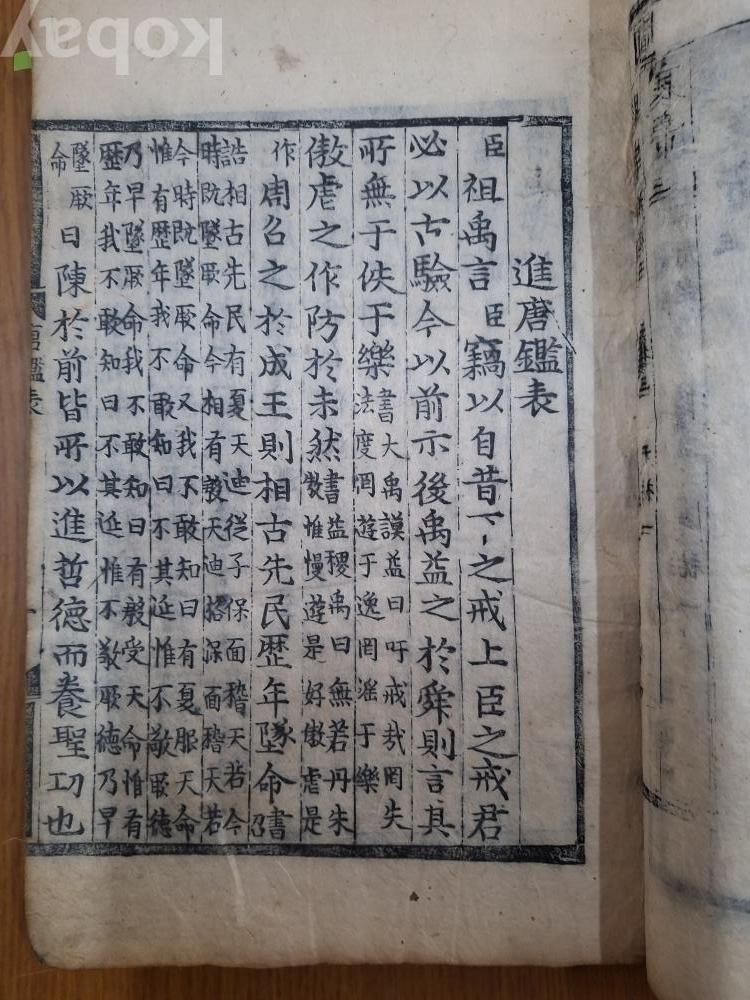 進唐鑑表
臣祖禹言臣竊以自昔下之戒上臣之戒君
必以古驗今以前示後禹益之於舜則言其
所無于佚于樂書大禹謨益曰吁戒㢤罔失
法度罔遊于逸罔滛于樂
傲虐之作防於未然書益稷禹曰無若丹朱
敖惟慢遊是好傲虐是
作周召之於成王則相古先民歷年墜命書召
誥相古先民有夏天迪從子保面稽天若今
時既墜厥命今相有殷天迪格保面稽天若
今時既墜厥命又我不敢知曰有夏服天命
惟有歷年我不敢知曰不其延惟不敬厥德
乃早墜厥命我不敢知曰有殷受天命惟有
歷年我不敢知曰不其延惟不敬厥德乃早
墜厥命曰陳於前皆所以進哲德而養聖功也
唐鑑表
kobay